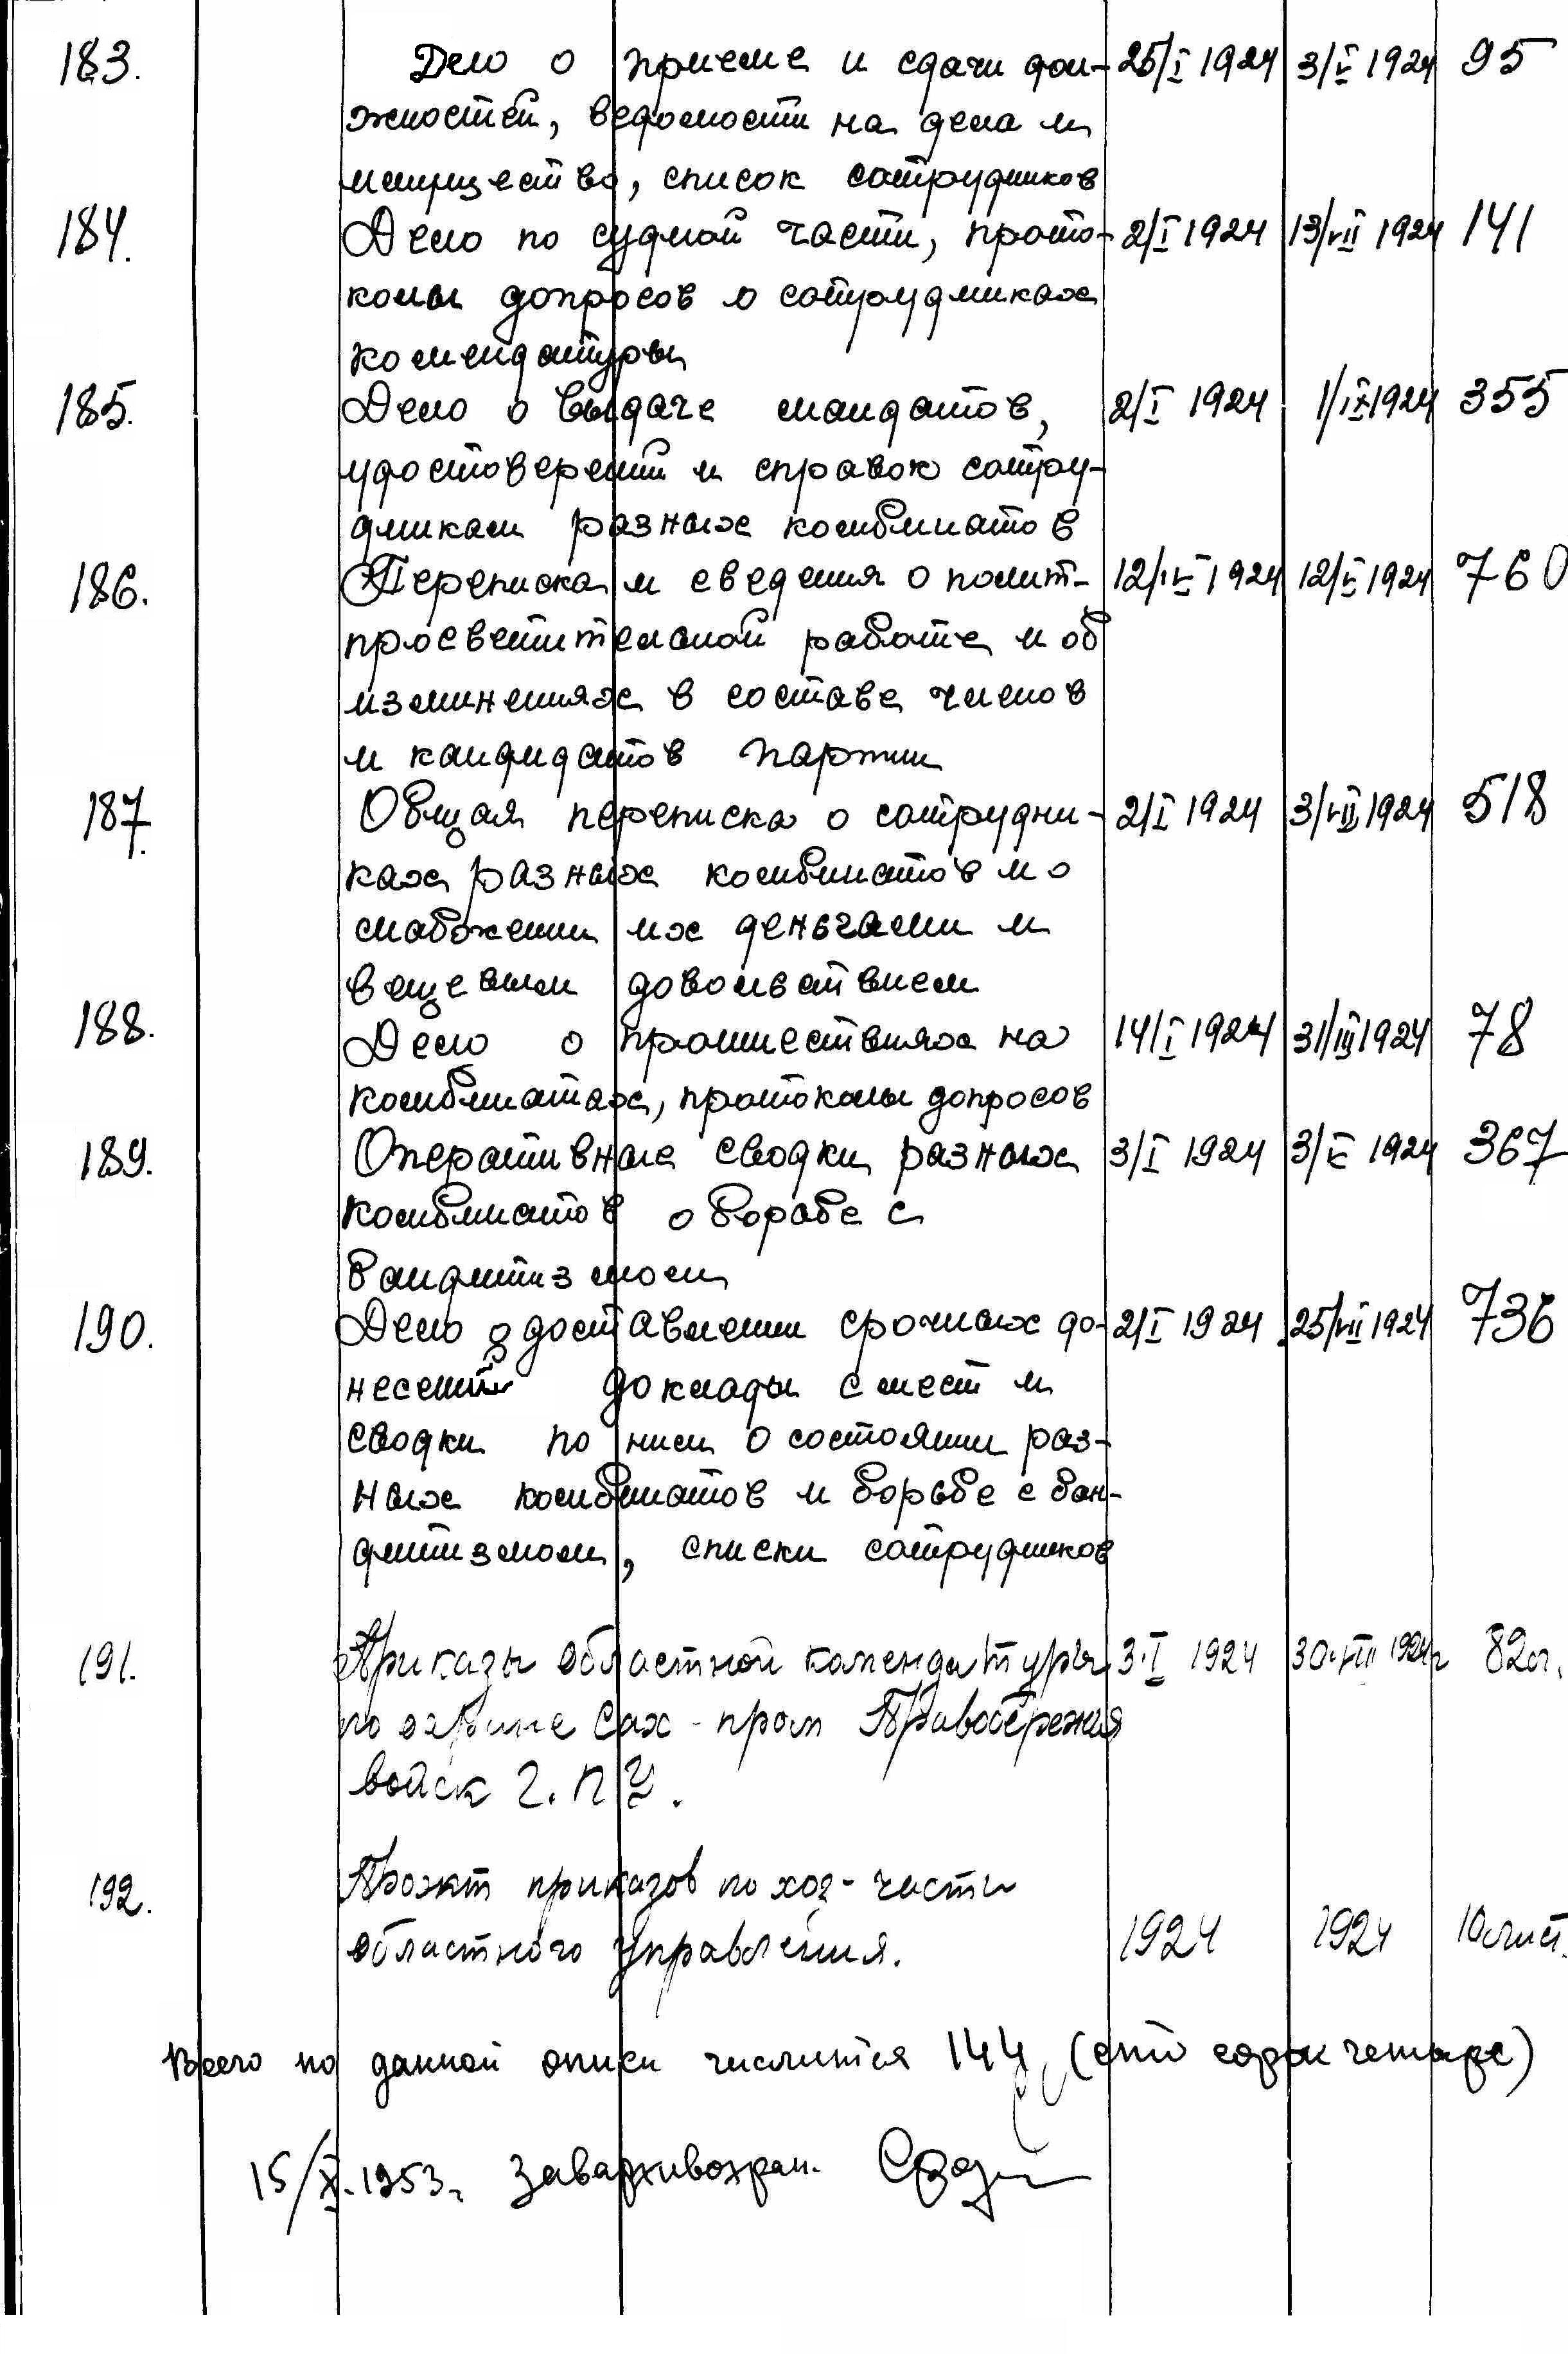 183. Дело о приеме и сдачи дол- 25/I 1924 3/V 1924 95
жностей, ведомости на дела и
имущество, список сотрудников
184. Дело по судной части, прото- 2/I 1924 13/VII 1924 141
колы допросов о сотрудниках
комендатуры
185. Дело о выдаче мандатов, 2/I 1924 1/IX 1924 355
удостоверений и справок сотру-
дникам разных комбинатов
186. Переписка и сведения о полит- 12/IV 1924 12/V 1924 760
просветительной работе и об
изминениях в составе членов
и кандидатов партии
187. Общая переписка о сотрудни- 2/I 1924 3/VII 1924 518
ках разных комбинатов и о
снабжении их деньгами и
вещевым довольствием
188. Дело о проишествиях на 14/I 1924 31/III 1924 78
комбинатах, протоколы допросов
189. Оперативные сводки разных 3/I 1924 3/V 1924 367
комбинатов о борьбе с
бандитизмом
190. Дело о доставлении срочных до- 2/I 1924 25/VII 1924 736
несений доклады с мест и
сводки по ним о состоянии раз-
ных комбинатов и борьбе с бан-
дитизмом, списки сотрудников
191. Приказы областной комендатуры 3.I 1924 30.VII 1924г 82л.
по охране Сах-пром Правобережия
войск Г.П.У.
192. Проэкт приказов по хоз-части
областного управления. 1924 1924 10 лист.
Всего по данной описи числится 144 (сто сорок четыре)
15/X.1953г. Завархивохран.